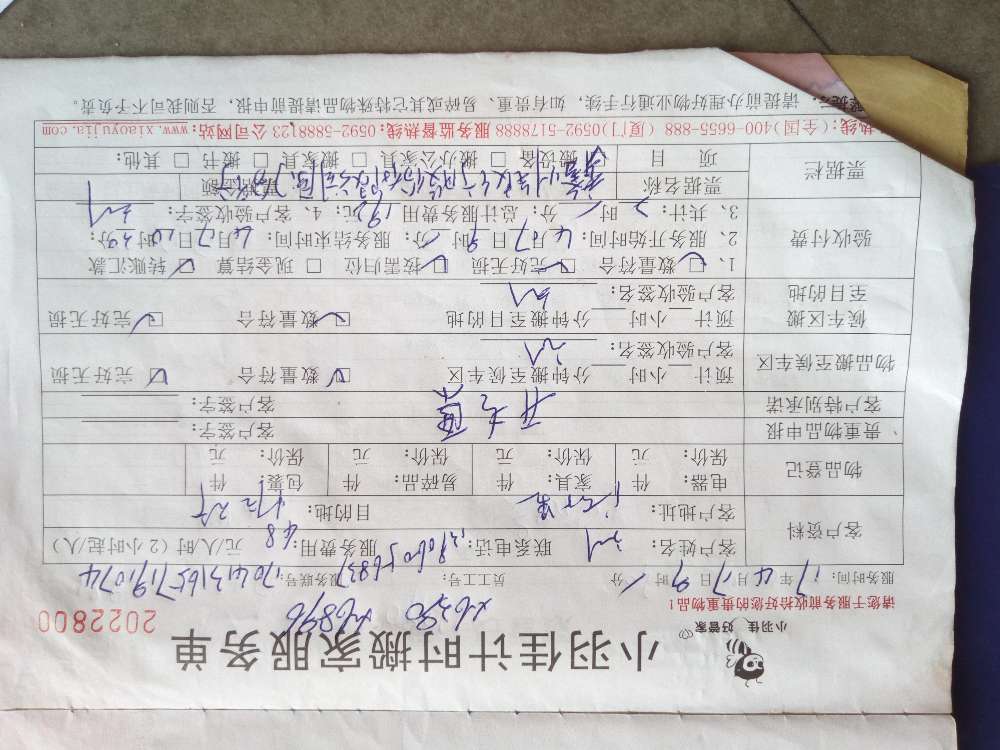 小羽佳 好管家
小羽佳计时搬家服务单
请您于服务前收拾好您的贵重物品!
2022800
x6390 x6896
服务时间: 17年4月7日9时 分 员工工号: 服务联号: 1704131657191074
客户资料
客户姓名: 联系电话: 服务费用: 48 元/人/时(2小时起/人)
客户地址: 目的地:
物品登记
电器: 件 家具: 件 易碎品: 件 包裹: 件
保价: 元 保价: 元 保价: 元 保价: 元
贵重物品申报 客户签字:
客户特别承诺 客户签字:
物品搬至候车区
预计 小时 分钟搬至候车区 ☑ 数量符合 ☑ 完好无损
客户验收签名:
候车区搬至目的地
预计 小时 分钟搬至目的地 ☑ 数量符合 ☑ 完好无损
客户验收签名:
验收付费
1、☑ 数量符合 ☑ 完好无损 ☑ 按需归位 □ 现金结算 ☑ 转账汇款
2、服务开始时间: 4月7日9时 分; 服务结束时间: 4月7日10时39分;
3、共计: 2时 分 总计服务费用 192 元; 4、客户验收签字:
票据栏
票据名称 票据金额
项 目 □ 搬设备 □ 搬办公家具 □ 搬家具 □ 搬书 □ 其他:
热线:(全国)400-6655-888 (厦门)0592-5178888 服务监督热线:0592-5888123 公司网站: www.xiaoyujia.com
请提前办理好物业通行手续, 如有贵重、易碎或其它特殊物品请提前申报, 否则我司不予负责。